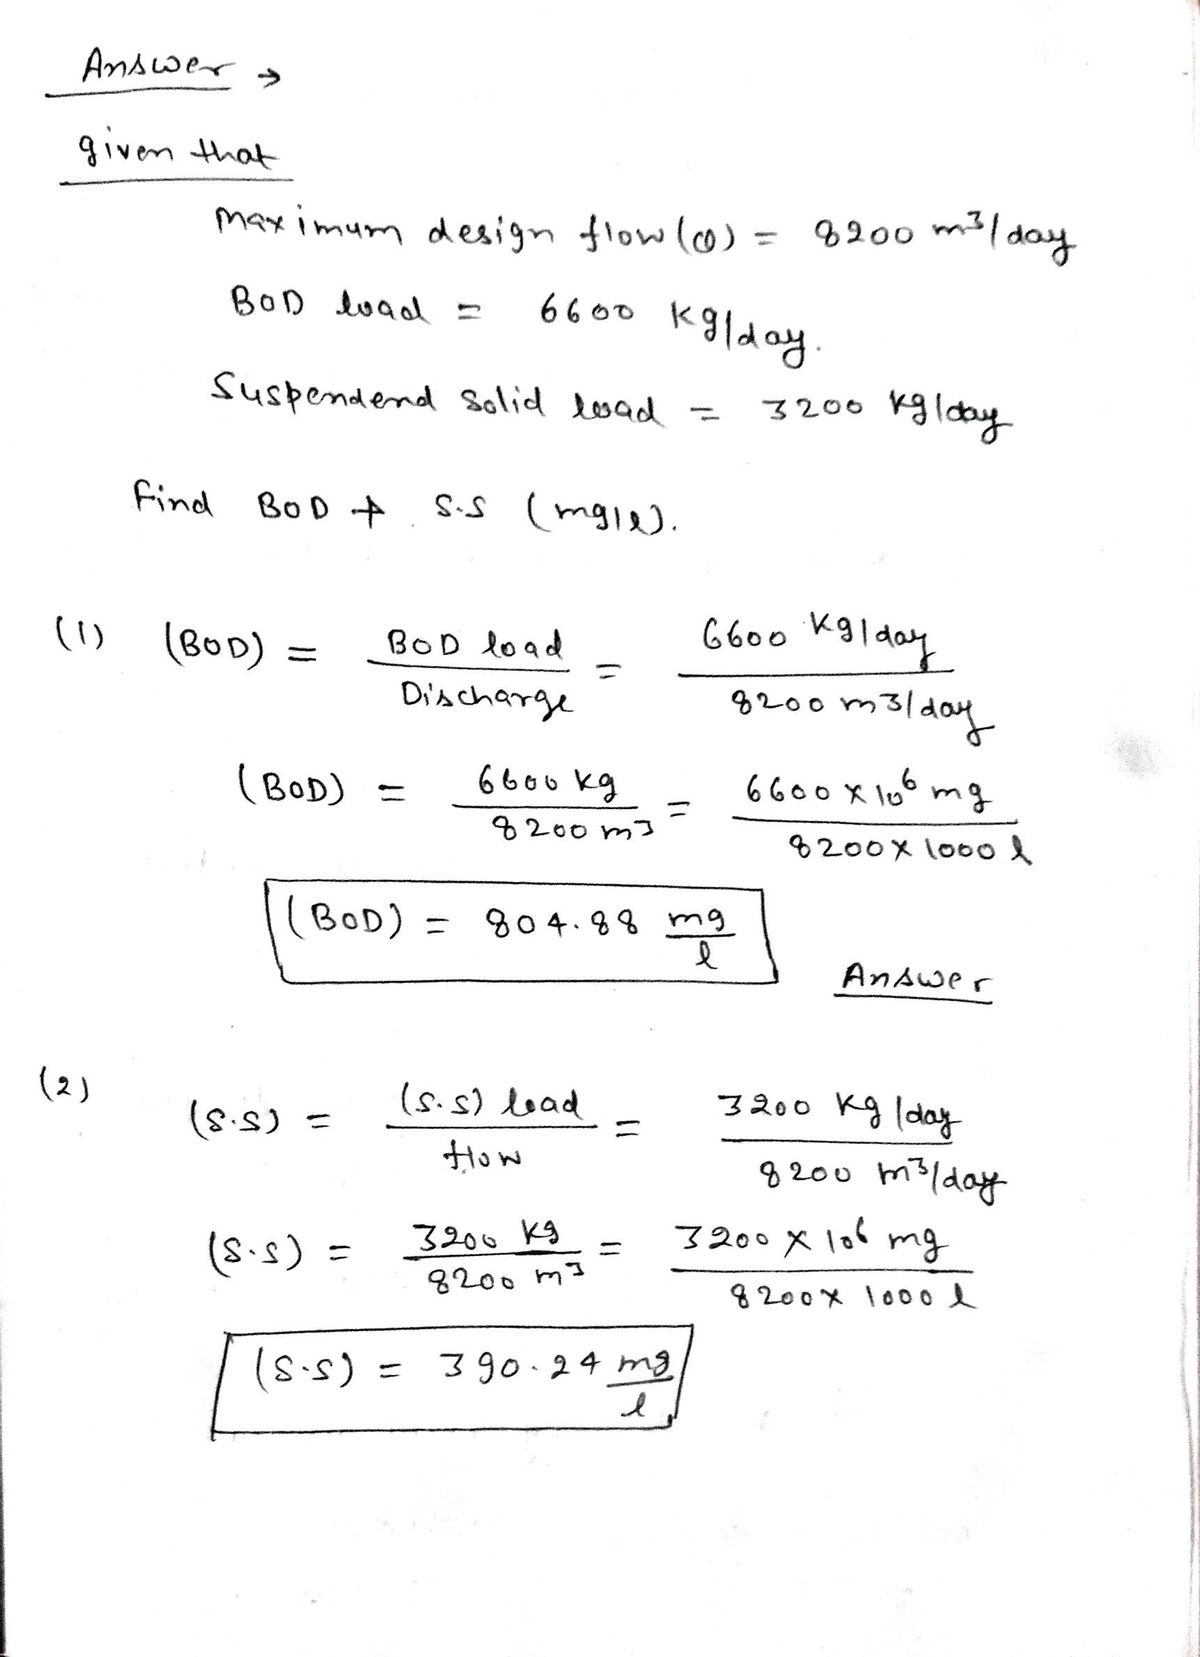 Answer →
given that
Maximum design flow (Q) = 8200 m³/day
BOD load = 6600 kg/day.
Suspendend Solid load = 3200 kg/day
Find BOD + S.S (mg/l).
(1) (BOD) = BOD load / Discharge = 6600 kg/day / 8200 m3/day
(BOD) = 6600 kg / 8200 m3 = 6600 × 10⁶ mg / 8200 × 1000 l
(BOD) = 804.88 mg/l
Answer
(2) (S.S) = (S.S) load / flow = 3200 kg/day / 8200 m³/day
(S.S) = 3200 kg / 8200 m³ = 3200 × 10⁶ mg / 8200 × 1000 l
(S.S) = 390.24 mg/l